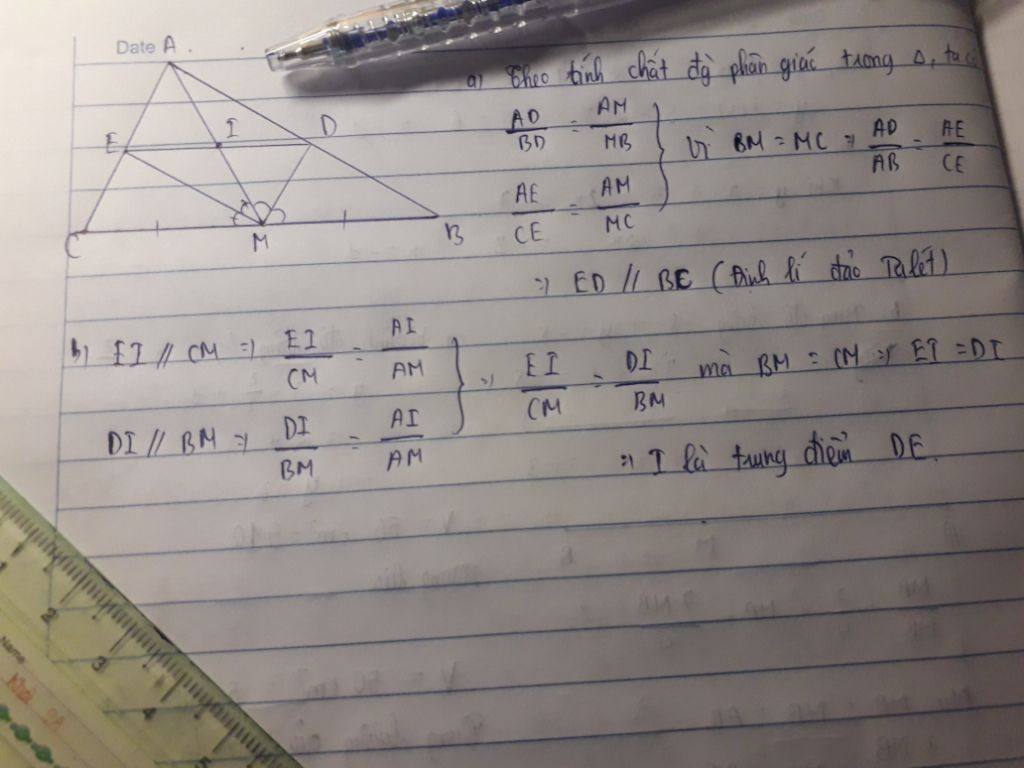 Date A
E I D
C M B
a) Theo tính chất đg phân giác trong Δ, ta có
AD/BD = AM/MB
AE/CE = AM/MC
} Vì BM = MC => AD/AB = AE/CE
=> ED // BE (Định lí đảo Talét)
b) EI // CM => EI/CM = AI/AM
DI // BM => DI/BM = AI/AM
} => EI/CM = DI/BM mà BM = CM => EI = DI
=> I là trung điểm DE.
1
2
3
4
5
Name